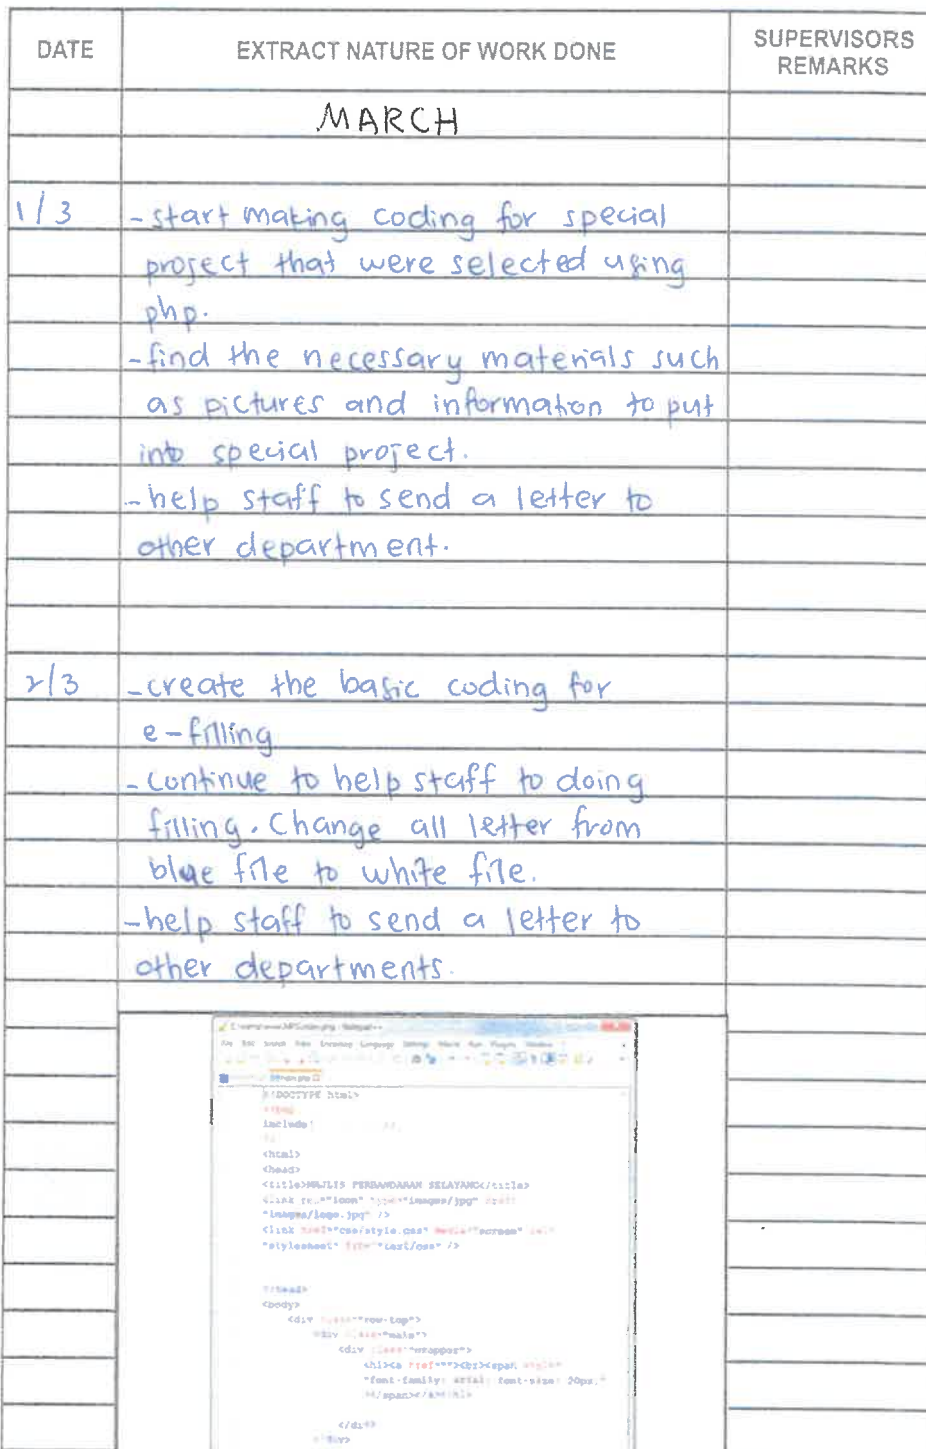 DATE EXTRACT NATURE OF WORK DONE SUPERVISORS REMARKS
MARCH
1/3 -start making coding for special
project that were selected using
php.
-find the necessary materials such
as pictures and information to put
into special project.
-help staff to send a letter to
other department.
2/3 -create the basic coding for
e-filling
-continue to help staff to doing
filling. Change all letter from
blue file to white file.
-help staff to send a letter to
other departments.
<!DOCTYPE html>
include
<html>
<head>
<title>MAJLIS PERBANDARAN SELAYANG</title>
<link rel="icon" type="images/jpg" href=
"images/logo.jpg" />
<link href="css/style.css" media="screen" rel=
"stylesheet" type="text/css" />
</head>
<body>
<div class="row-top">
<div class="main">
<div class="wrapper">
<h1><a href=""><br><span style=
"font-family: arial; font-size: 20px;"
></span></a></h1>
</div>
</div>